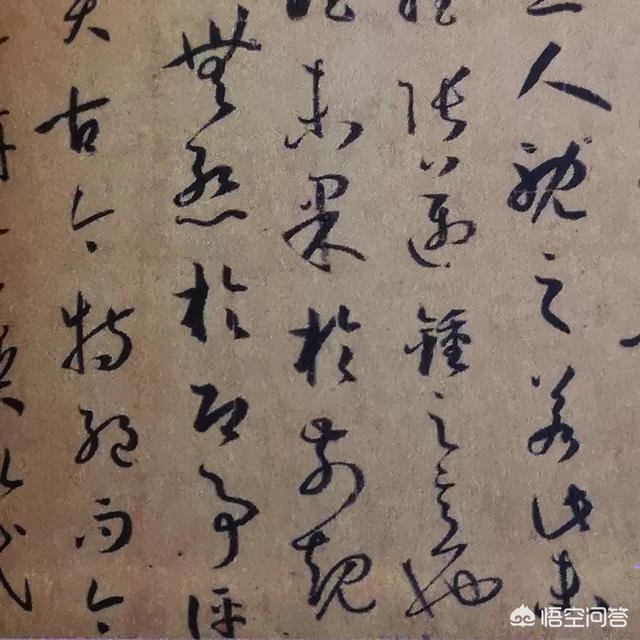 人耽之若此未
張邁鍾之意也
未果於前規
無慙於即事評
古今特絕而今
悟空问答